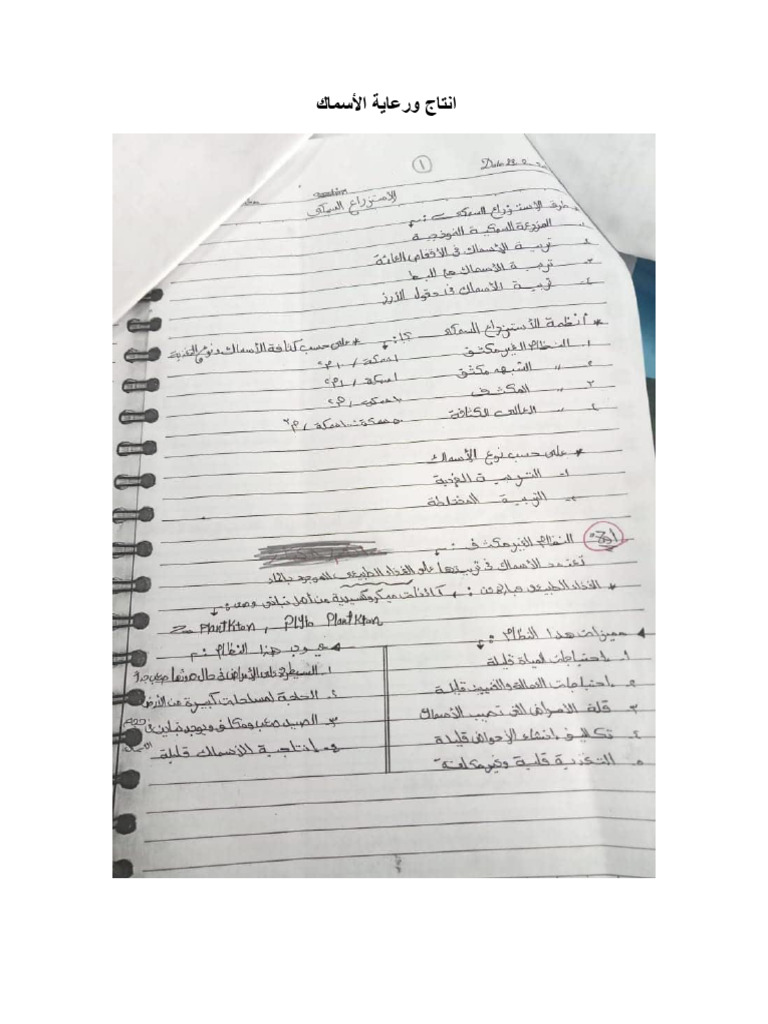 انتاج ورعاية الأسماك
١
الاستزراع السمكي
طرق الاستزراع السمكي :-
١. المزرعة السمكية النموذجية
٢. تربية الأسماك في الأقفاص العائمة
٣. تربية الأسماك مع البط
٤. تربية الأسماك في حقول الأرز
* أنظمة الأستزراع السمكي
* على حسب كثافة الأسماك ونوع التغذية
١. النظام الغير مكثف
٢. " الشبه مكثف
٣. " المكثف
٤. " العالى الكثافة
* على حسب نوع الأسماك
١. التربية الفردية
٢. التربية المختلطة
النظام الغير مكثف :-
تعتمد الأسماك في تربيتها على الغذاء الطبيعى الموجود بالماء
* الغذاء الطبيعى عبارة عن : كائنات ميكروسكوبية من أصل نباتى
Zoo plantkton , Phyto Plantkton
مميزات هذا النظام :-
١. إحتياجات المياة قليلة
٢. إحتياجات العمالة والفنيين قليلة
٣. قلة الأمراض التى تصيب الأسماك
٤. تكاليف إنشاء الأحواض قليلة
٥. التغذية قليلة وغير مكلفة
عيوب هذا النظام :-
١. السيطرة على الأمراض في حال حدوثها صعب جداً
٢. الحاجة لمساحات كبيرة من الأرض
٣. الصيد صعب ومكلف ويوجد تباين في حجم الأسماك
٤. إنتاجية الأسماك قليلة